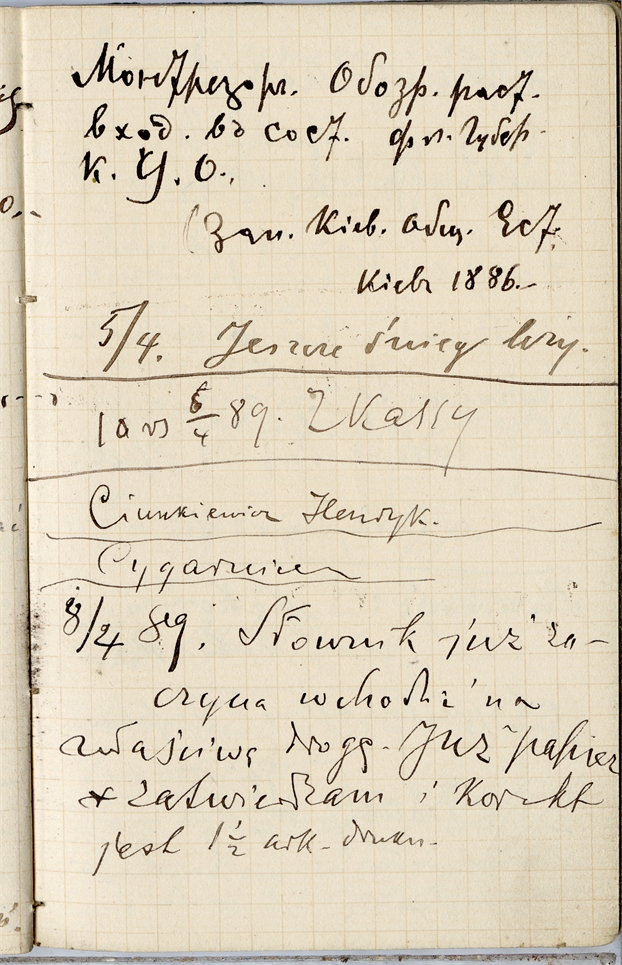 Монтрезор. Обозр. раст.
вход. въ сост. фл. губер.
К. У. О.,
(Зап. Киев. Общ. Ест.
Киевъ 1886.
5/4. Jeszcze śnieg leży.
10 rs 6/4 89. Z Kassy
Ciunkiewicz Henryk.
Cygarnica
8/4 89. Słownik już za-
czyna wchodzić na
właściwą drogę. Już papier
zatwierdzam i korekt
jest 1 1/2 ark. druku.